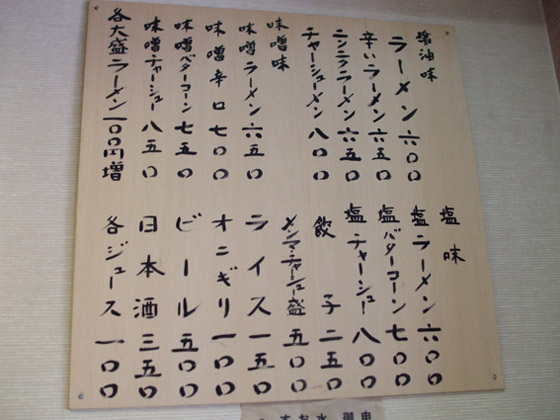 醤油味
ラーメン 六〇〇
辛いラーメン 六五〇
ニンニクラーメン 六五〇
チャーシューメン 八〇〇
味噌味
味噌ラーメン 六五〇
味噌辛口 七〇〇
味噌バターコーン 七五〇
味噌チャーシュー 八五〇
各大盛ラーメン 一〇〇円増
塩味
塩ラーメン 六〇〇
塩バターコーン 七〇〇
塩チャーシュー 八〇〇
餃子 二五〇
メンマ・チャーシュー盛 五〇〇
ライス 一五〇
オニギリ 一〇〇
ビール 五〇〇
日本酒 三五〇
各ジュース 一〇〇